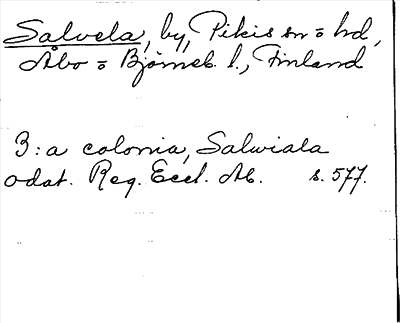 Salvela, by, Pikis sn o hd,
Åbo o Björneb. l., Finland
3:a colonia, Salwiala
odat. Reg. Eccl. Ab. s. 577.